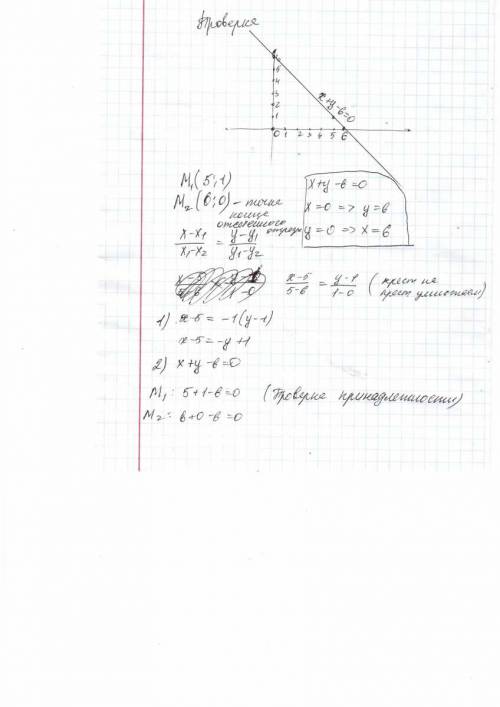 Проверка
6
5
4
3
2
1
0 1 2 3 4 5 6
x+y-6=0
M₁(5;1)
M₂(6;0) - точка
конце
отсеченного
отрезка
(x-x₁)/(x₁-x₂) = (y-y₁)/(y₁-y₂)
x+y-6=0
x=0 => y=6
y=0 => x=6
(x-5)/(5-6) = (y-1)/(1-0) (крест на
крест умножаем)
1) x-5 = -1(y-1)
x-5 = -y+1
2) x+y-6=0
M₁: 5+1-6=0 (Проверка принадлежности)
M₂: 6+0-6=0